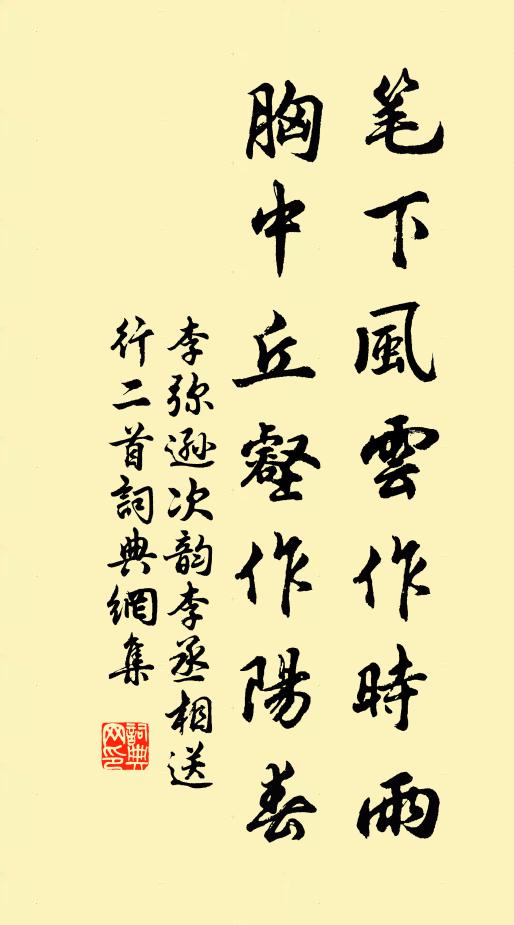 笔下風雲作時雨
胸中丘壑作陽春
李弥遜次韵李丞相送
行二首詞典網集
詞典
网印